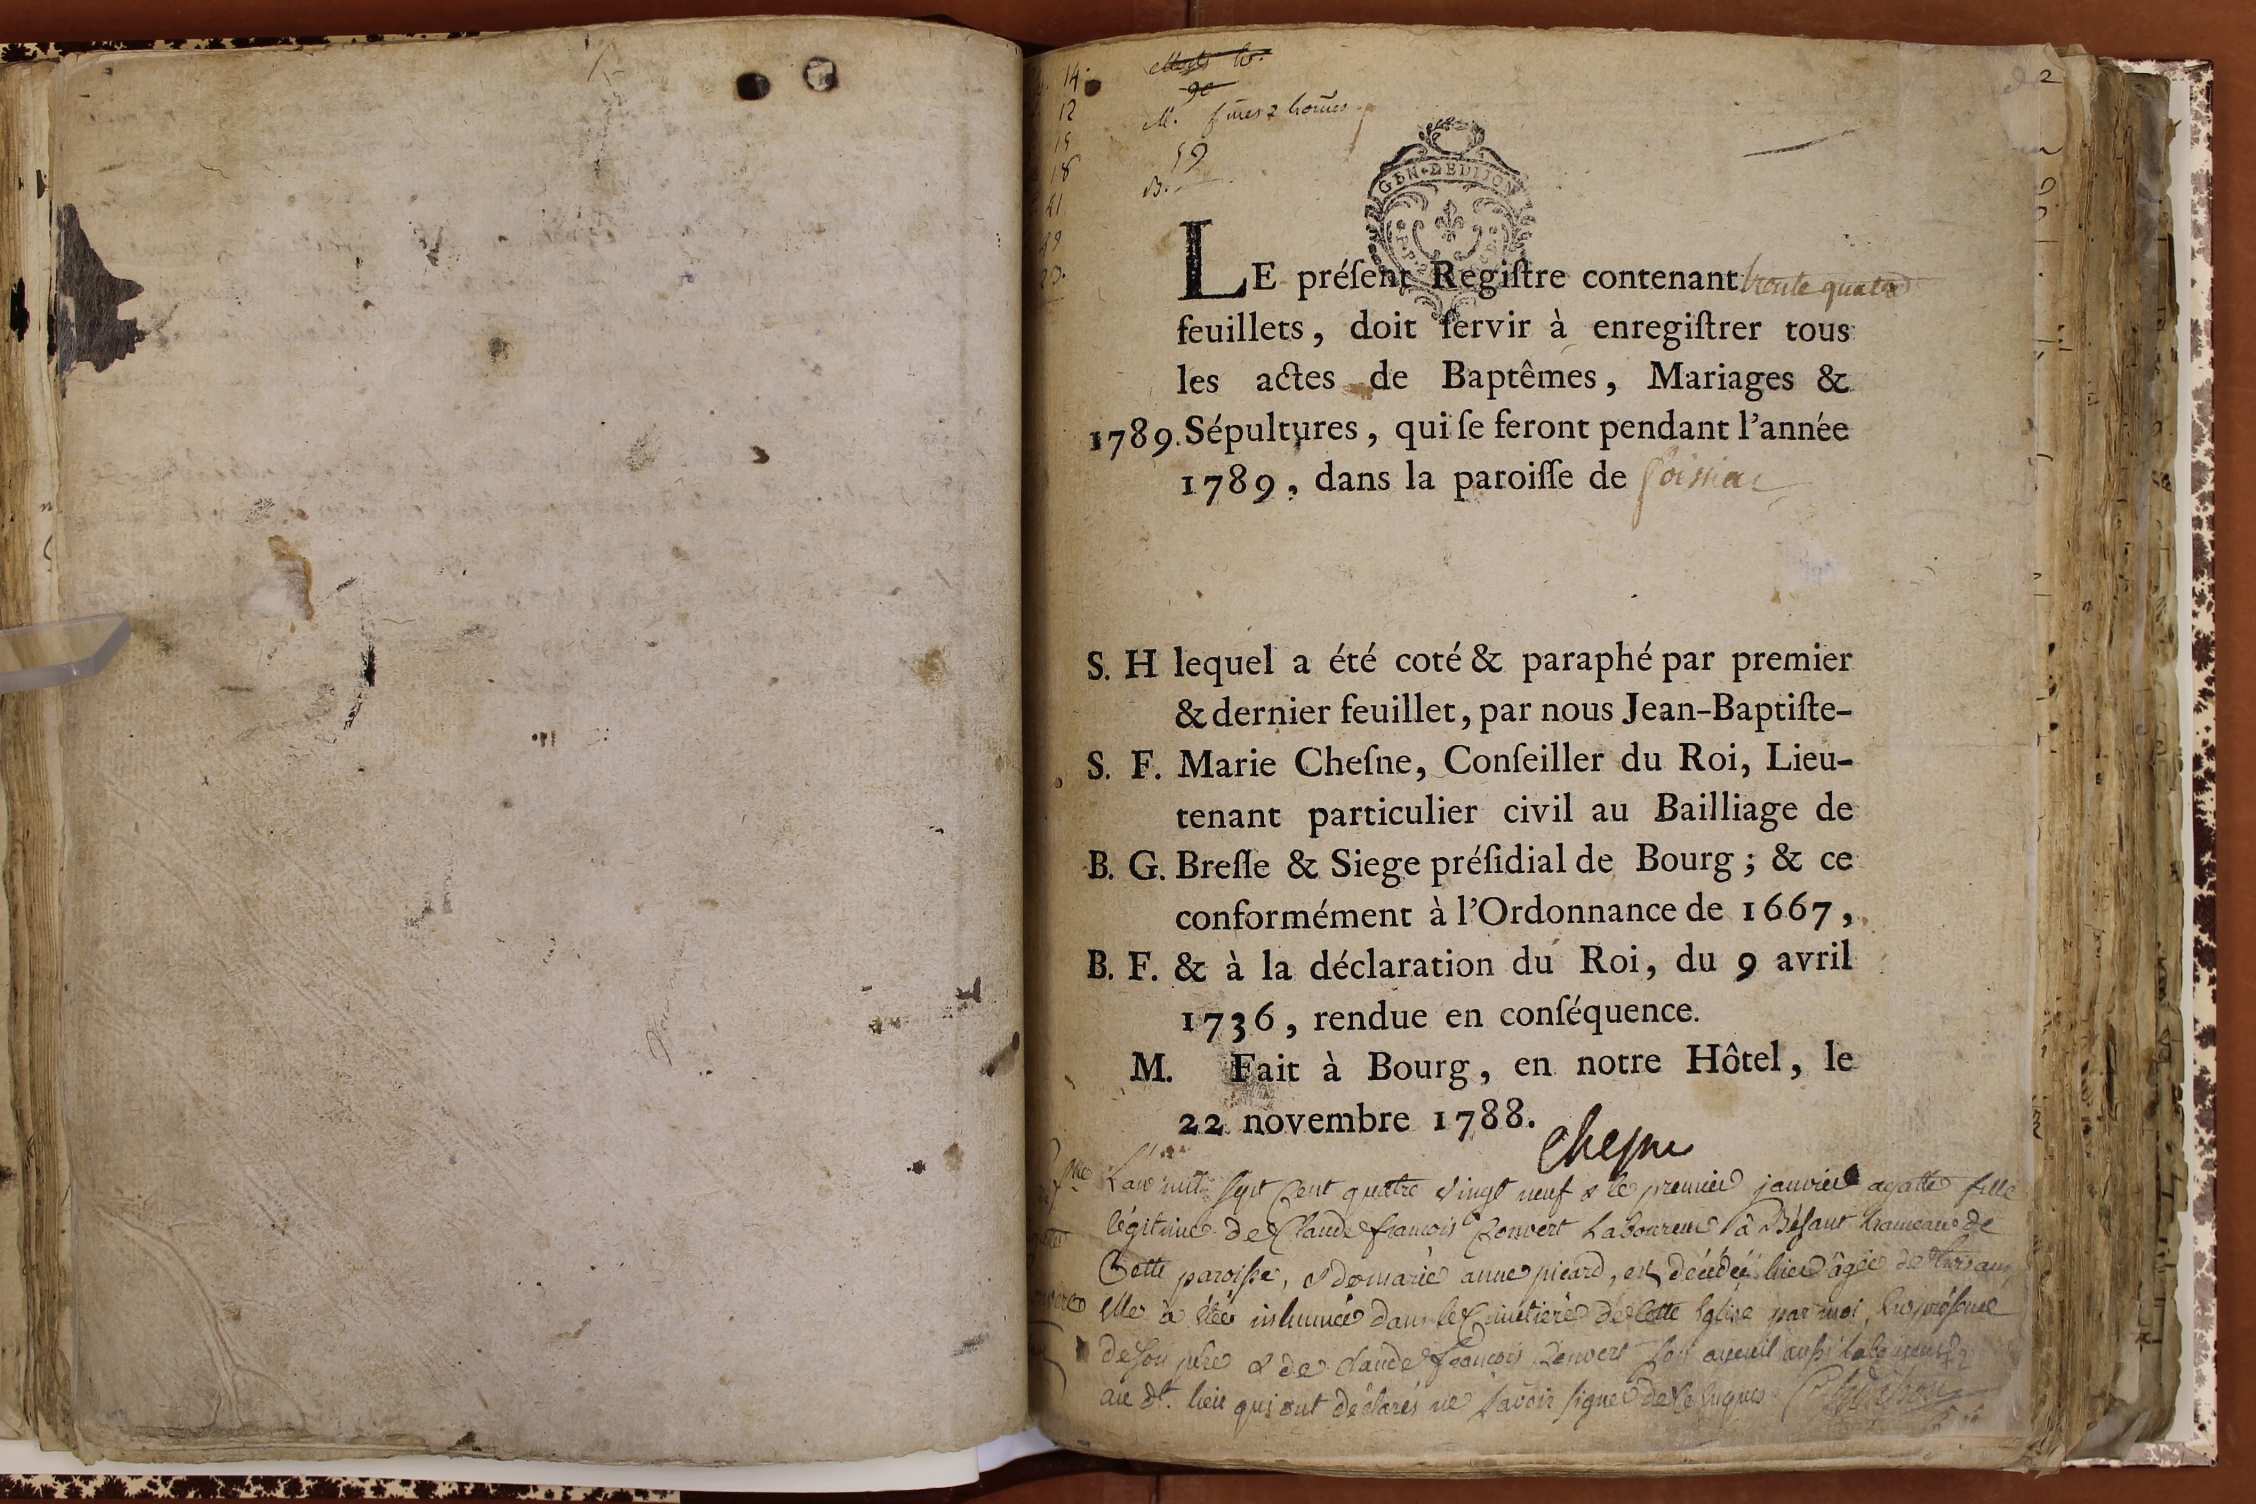 14.
12
15
18
41
49
23.
M. fmes 2 homes
59
B.
2
GEN. DE DIJON
LE préſent Regiſtre contenant trente quatre
feuillets, doit ſervir à enregiſtrer tous
les actes de Baptêmes, Mariages &
1789. Sépultures, qui ſe feront pendant l'année
1789, dans la paroiſſe de
S. H lequel a été coté & paraphé par premier
& dernier feuillet, par nous Jean-Baptiſte-
S. F. Marie Cheſne, Conſeiller du Roi, Lieu-
tenant particulier civil au Bailliage de
B. G. Breſſe & Siege préſidial de Bourg; & ce
conformément à l'Ordonnance de 1667,
B. F. & à la déclaration du Roi, du 9 avril
1736, rendue en conſéquence.
M. Fait à Bourg, en notre Hôtel, le
22 novembre 1788.
Chesne
L'an mil sept cent quatre vingt neuf & le premier janvier agathe fille
légitime de Claude françois Convert Laboureur à Béſant hameau de
Cette paroiſse, & de marie anne picard, est décédée hier âgée de trois ans
elle a étée inhumée dans le Cimetière de cette église par moi, en présence
de son père & de claude françois Convert son ayeuil aussi laboureur
au dt. lieu qui ont déclarés ne savoir signer de ce enquis